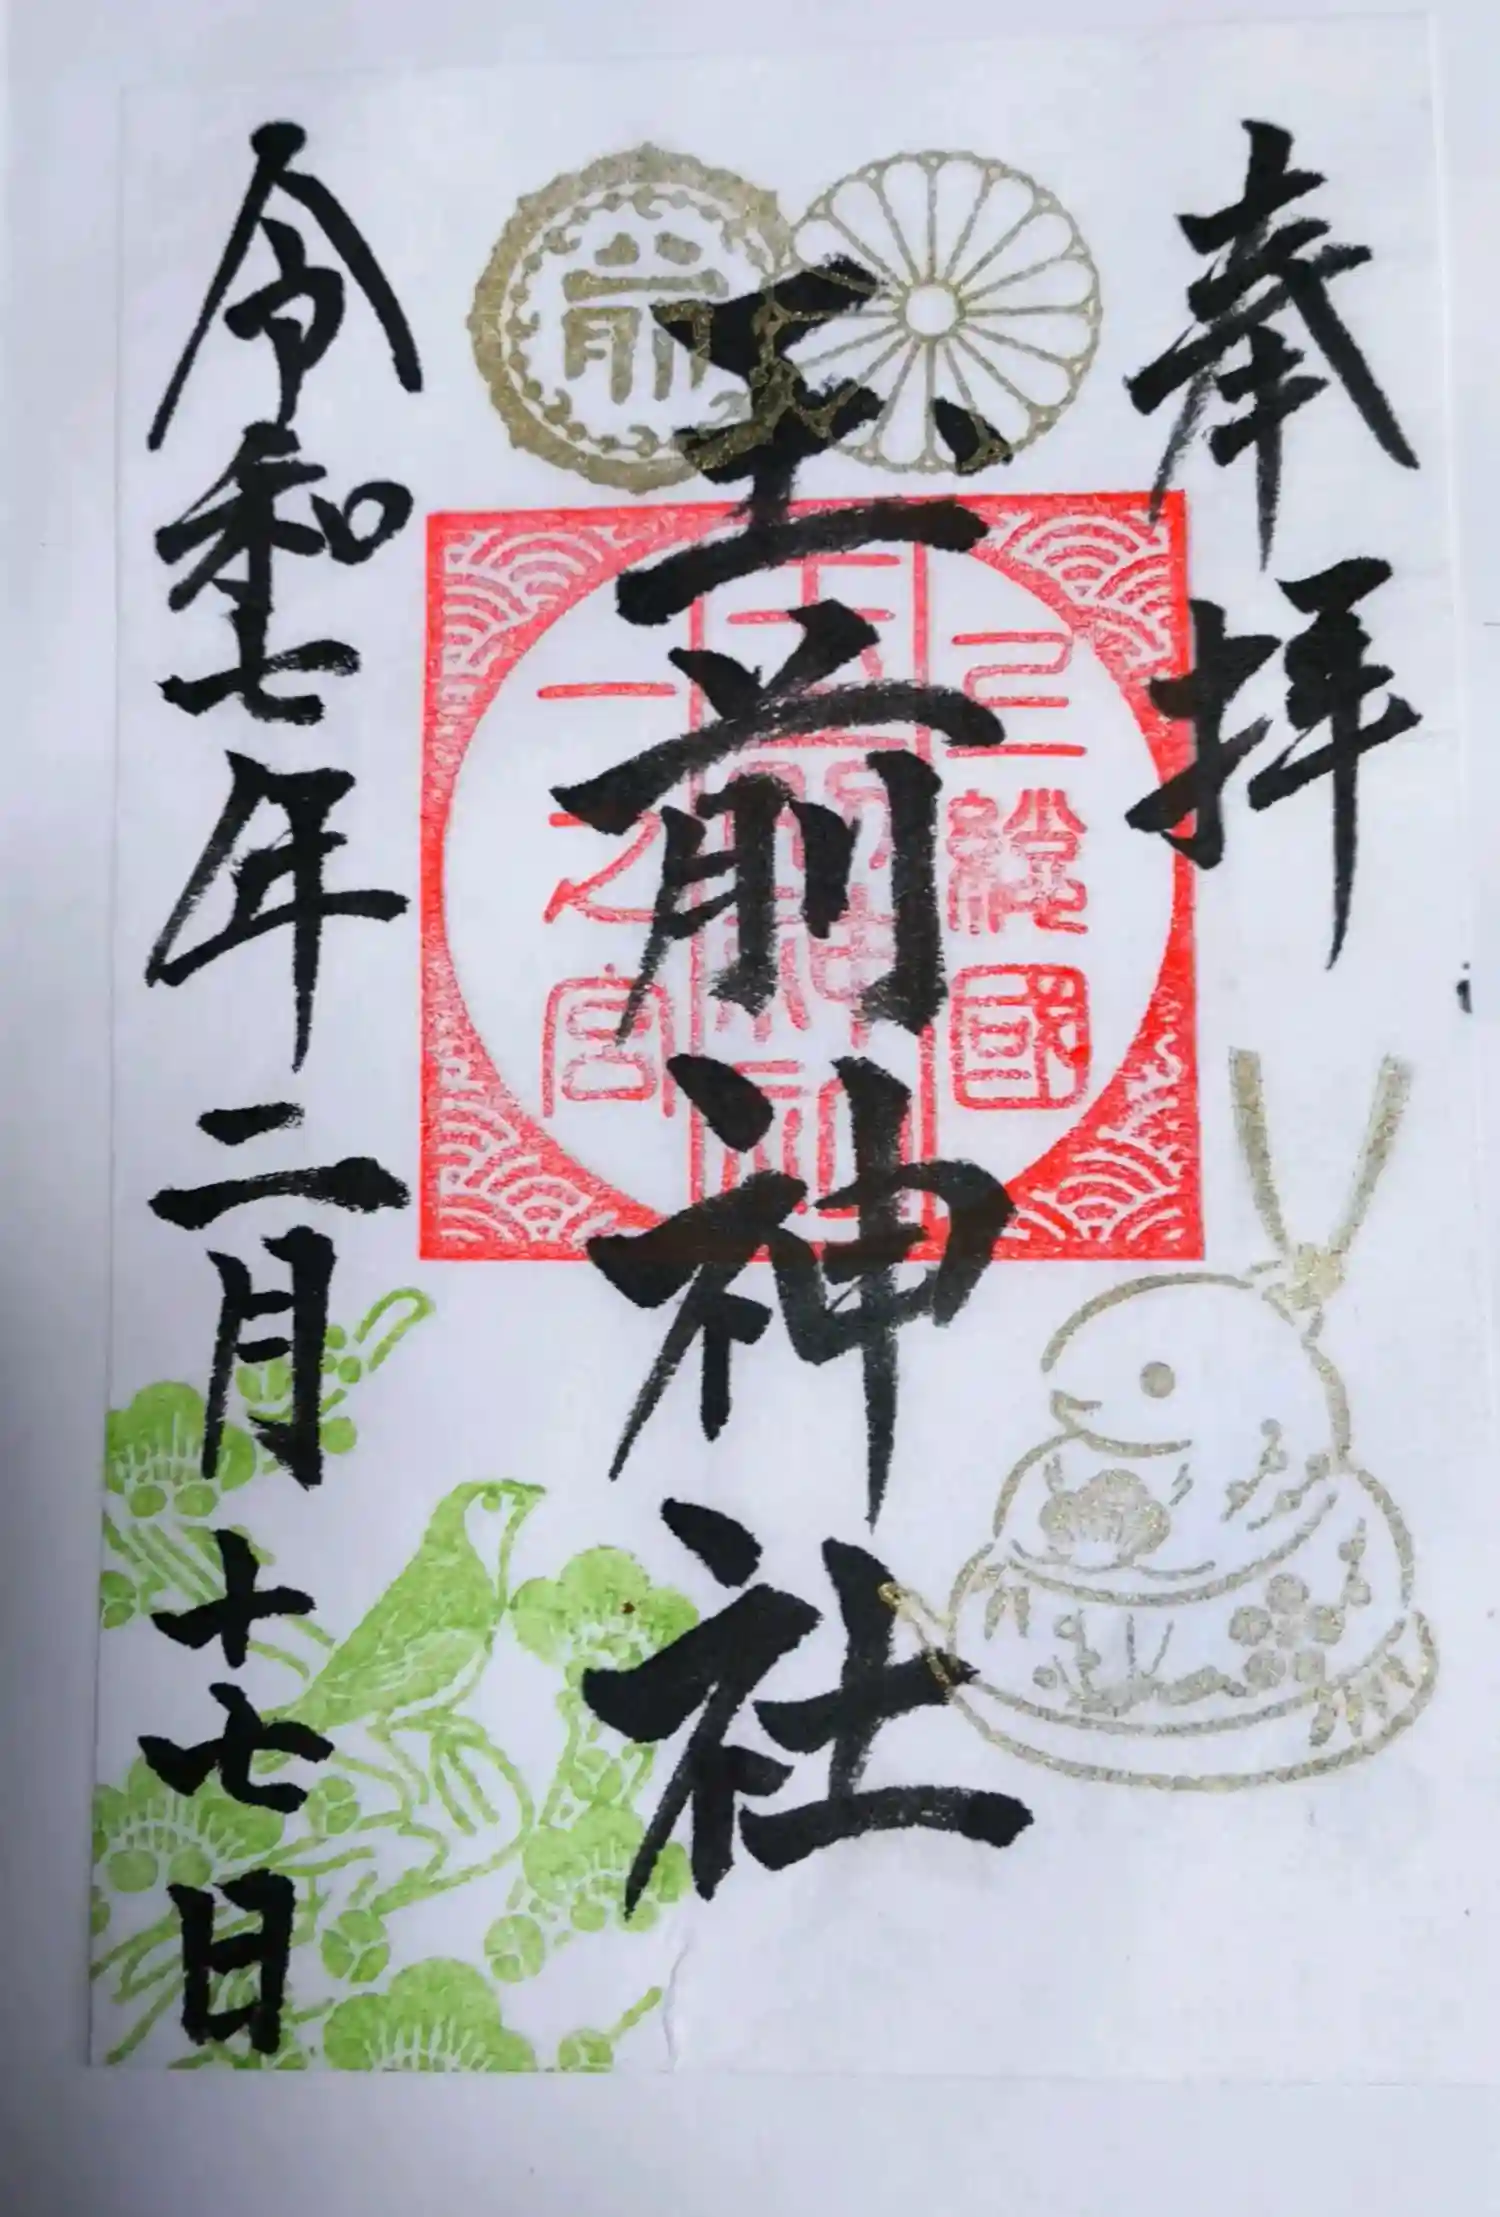 奉拝
玉前神社
上總國
玉前神社
一之宮
前
令和七年二月十七日